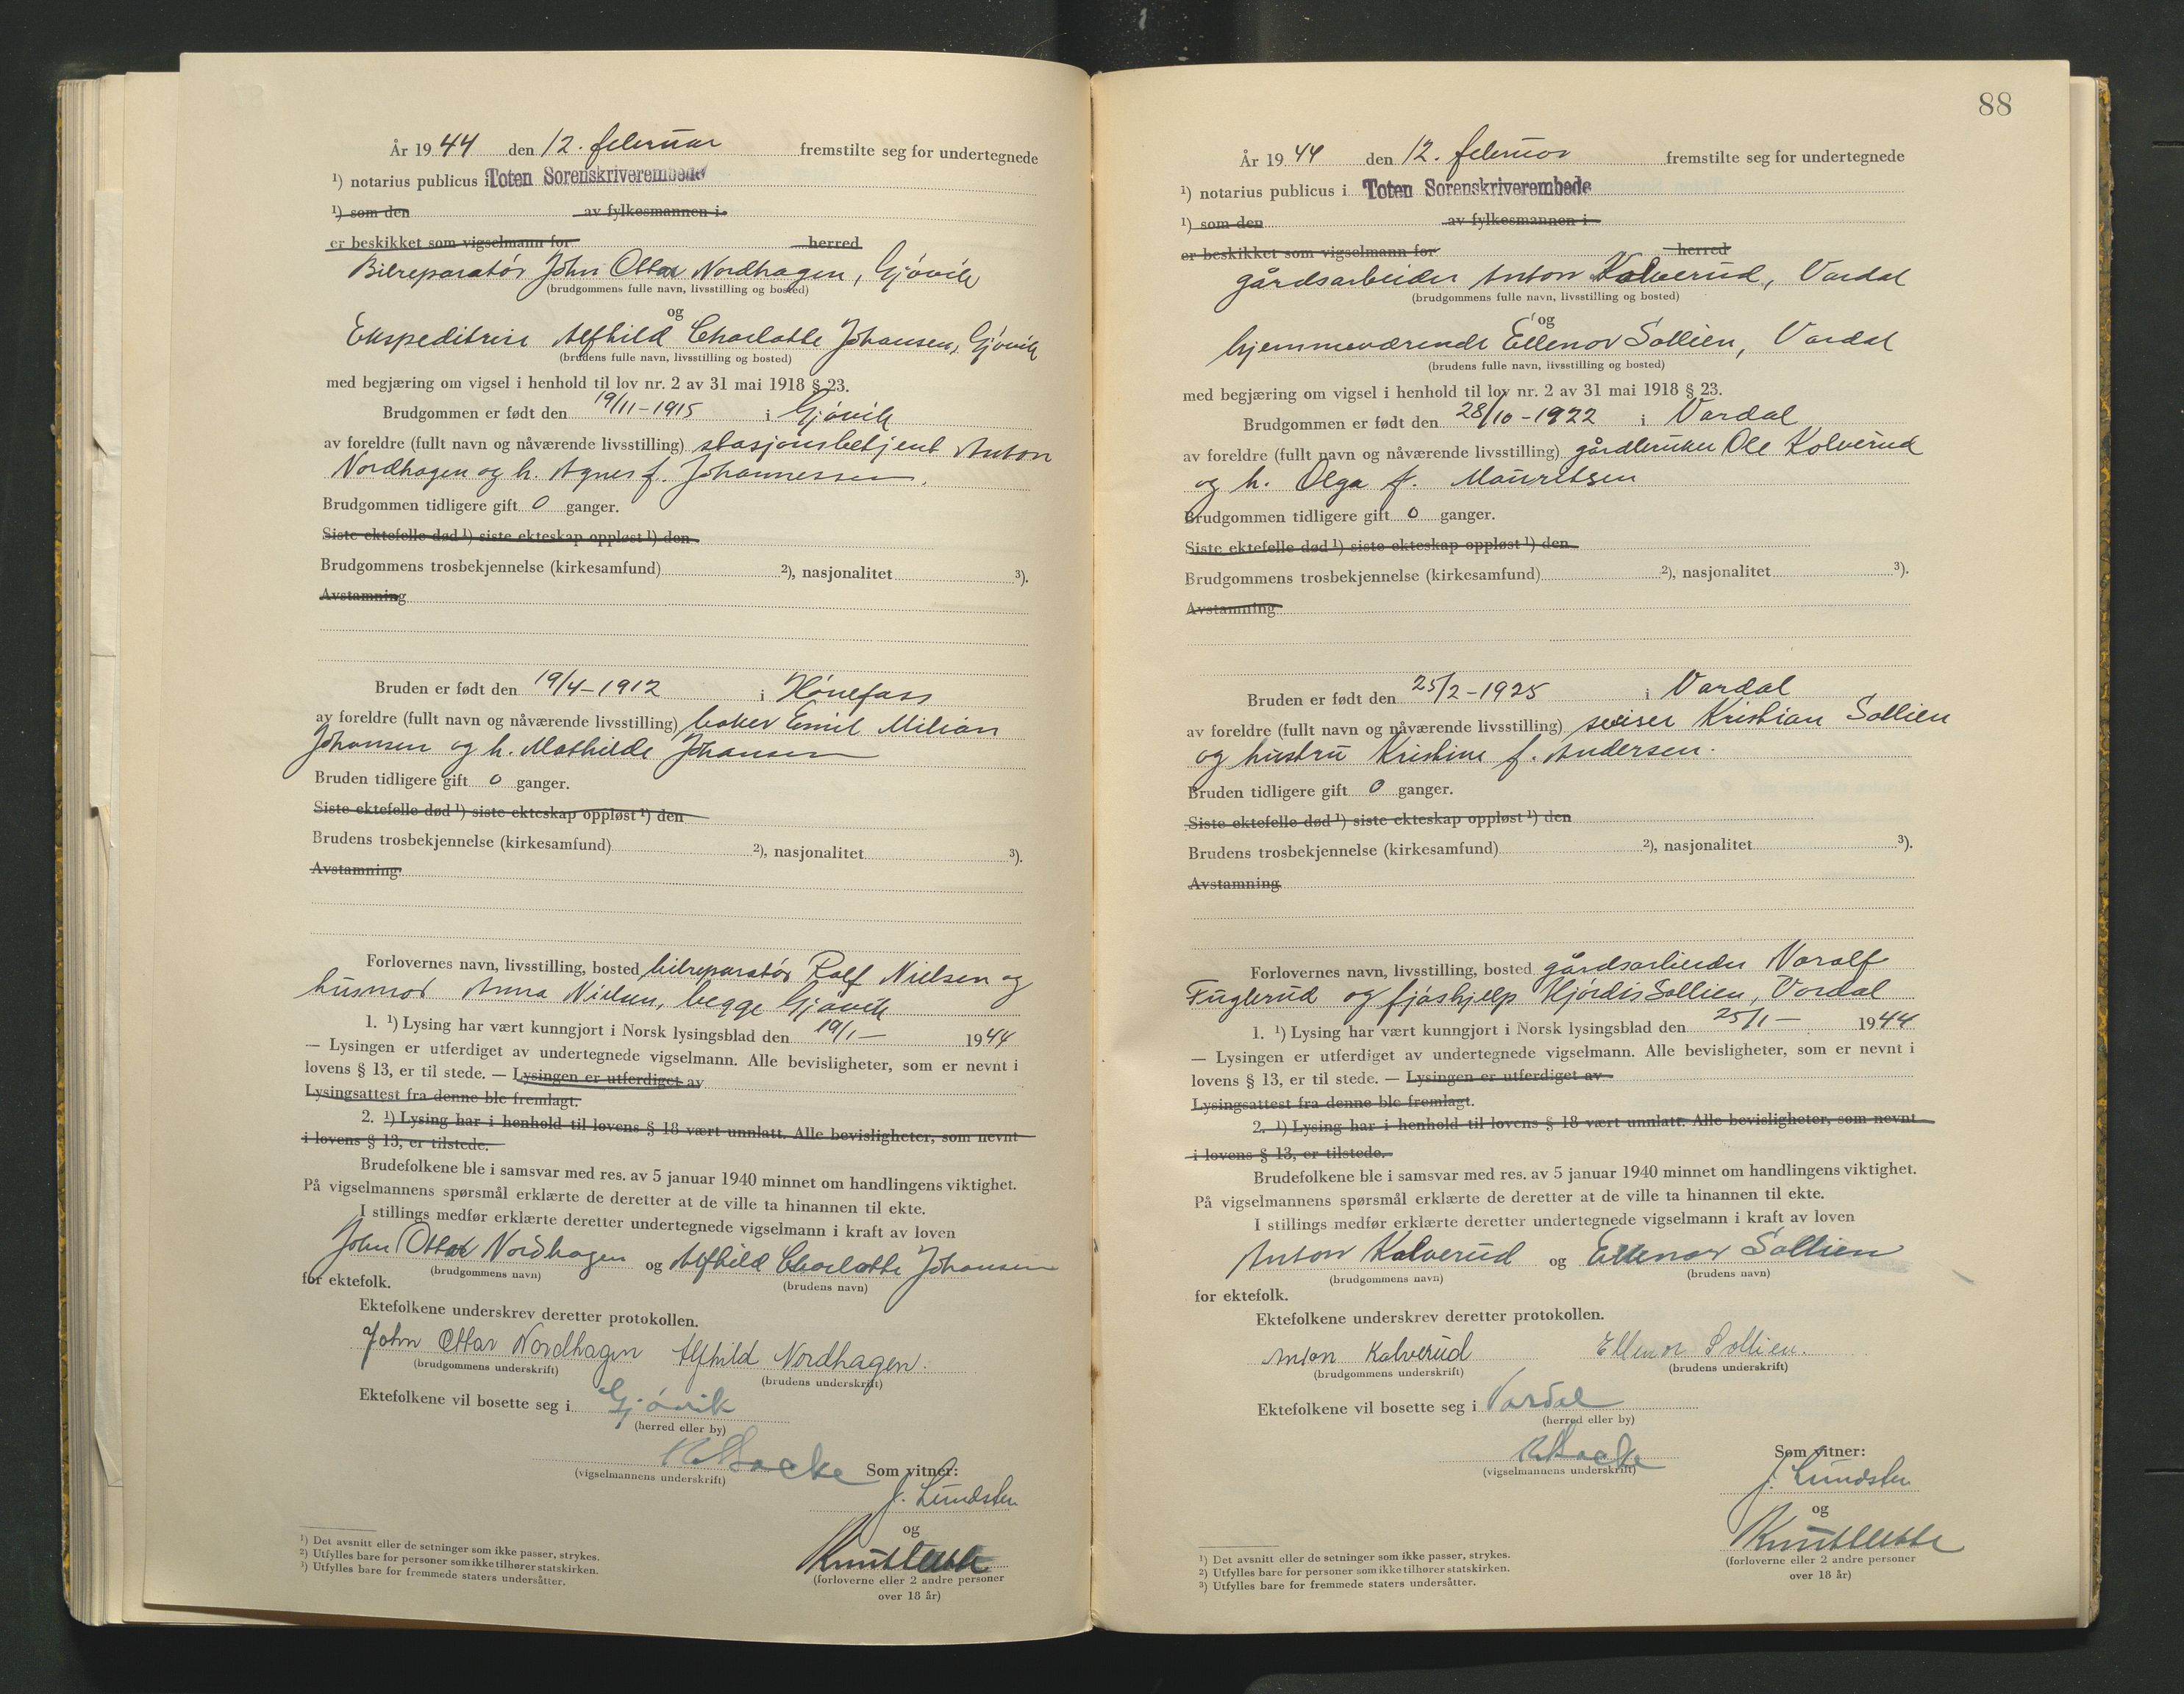 År 1944 den 12. februar fremstilte seg for undertegnede
¹) notarius publicus i Toten Sorenskriverembede
¹) som den av fylkesmannen i
er beskikket som vigselmann for herred
Bilreparatør John Ottar Nordhagen, Gjøvik
(brudgommens fulle navn, livsstilling og bosted)
og
Ekspeditrise Alfhild Charlotte Johansen, Gjøvik
(brudens fulle navn, livsstilling og bosted)
med begjæring om vigsel i henhold til lov nr. 2 av 31 mai 1918 § 23.
Brudgommen er født den 19/11-1915 i Gjøvik
av foreldre (fullt navn og nåværende livsstilling) stasjonsbetjent Anton
Nordhagen og h. Agnes f. Johannessen.
Brudgommen tidligere gift 0 ganger.
Siste ektefelle død ¹) siste ekteskap oppløst ¹) den
Brudgommens trosbekjennelse (kirkesamfund) ²), nasjonalitet ³).
Avstamning
Bruden er født den 19/4-1912 i Hønefoss
av foreldre (fullt navn og nåværende livsstilling) baker Emil Milian
Johansen og h. Mathilde Johansen
Bruden tidligere gift 0 ganger.
Siste ektefelle død ¹) siste ekteskap oppløst ¹) den
Brudens trosbekjennelse (kirkesamfund) ²), nasjonalitet ³).
Avstamning
Forlovernes navn, livsstilling, bosted bilreparatør Rolf Nielsen og
husmor Anna Nielsen, begge Gjøvik
1. ¹) Lysing har vært kunngjort i Norsk lysingsblad den 19/1- 1944
— Lysingen er utferdiget av undertegnede vigselmann. Alle bevisligheter, som er nevnt i
lovens § 13, er til stede. — Lysingen er utferdiget av
Lysingsattest fra denne ble fremlagt.
2. ¹) Lysing har i henhold til lovens § 18 vært unnlatt. Alle bevisligheter, som nevnt
i lovens § 13, er tilstede.
Brudefolkene ble i samsvar med res. av 5 januar 1940 minnet om handlingens viktighet.
På vigselmannens spørsmål erklærte de deretter at de ville ta hinannen til ekte.
I stillings medfør erklærte deretter undertegnede vigselmann i kraft av loven
John Ottar Nordhagen og Alfhild Charlotte Johansen
(brudgommens navn) (brudens navn)
for ektefolk.
Ektefolkene underskrev deretter protokollen.
John Ottar Nordhagen Alfhild Nordhagen.
(brudgommens underskrift) (brudens underskrift)
Ektefolkene vil bosette seg i Gjøvik
(herred eller by)
Som vitner:
(vigselmannens underskrift)
J. Lundsten
og
(forloverne eller 2 andre personer
over 18 år)
¹) Det avsnitt eller de setninger som ikke passer, strykes.
²) Utfylles bare for personer som ikke tilhører statskirken.
³) Utfylles bare for fremmede staters undersåtter.
88
År 1944 den 12. februar fremstilte seg for undertegnede
¹) notarius publicus i Toten Sorenskriverembede
¹) som den av fylkesmannen i
er beskikket som vigselmann for herred
gårdsarbeider Anton Kalverud, Vardal
(brudgommens fulle navn, livsstilling og bosted)
og
hjemmeværende Ellenor Sollien, Vardal
(brudens fulle navn, livsstilling og bosted)
med begjæring om vigsel i henhold til lov nr. 2 av 31 mai 1918 § 23.
Brudgommen er født den 28/10-1922 i Vardal
av foreldre (fullt navn og nåværende livsstilling) gårdbruker Ole Kolverud
og h. Olga f. Mauritsen
Brudgommen tidligere gift 0 ganger.
Siste ektefelle død ¹) siste ekteskap oppløst ¹) den
Brudgommens trosbekjennelse (kirkesamfund) ²), nasjonalitet ³).
Avstamning
Bruden er født den 25/2-1925 i Vardal
av foreldre (fullt navn og nåværende livsstilling) sveiser Kristian Sollien
og hustru Kristine f. Andersen.
Bruden tidligere gift 0 ganger.
Siste ektefelle død ¹) siste ekteskap oppløst ¹) den
Brudens trosbekjennelse (kirkesamfund) ²), nasjonalitet ³).
Avstamning
Forlovernes navn, livsstilling, bosted gårdsarbeider Noralf
Fuglerud og fjøshjelp Hjørdis Sollien, Vardal
1. ¹) Lysing har vært kunngjort i Norsk lysingsblad den 25/1- 1944
— Lysingen er utferdiget av undertegnede vigselmann. Alle bevisligheter, som er nevnt i
lovens § 13, er til stede. — Lysingen er utferdiget av
Lysingsattest fra denne ble fremlagt.
2. ¹) Lysing har i henhold til lovens § 18 vært unnlatt. Alle bevisligheter, som nevnt
i lovens § 13, er tilstede.
Brudefolkene ble i samsvar med res. av 5 januar 1940 minnet om handlingens viktighet.
På vigselmannens spørsmål erklærte de deretter at de ville ta hinannen til ekte.
I stillings medfør erklærte deretter undertegnede vigselmann i kraft av loven
Anton Kalverud og Ellenor Sollien
(brudgommens navn) (brudens navn)
for ektefolk.
Ektefolkene underskrev deretter protokollen.
Anton Kalverud Ellenor Sollien.
(brudgommens underskrift) (brudens underskrift)
Ektefolkene vil bosette seg i Vardal
(herred eller by)
Som vitner:
(vigselmannens underskrift)
J. Lundsten
og
(forloverne eller 2 andre personer
over 18 år)
¹) Det avsnitt eller de setninger som ikke passer, strykes.
²) Utfylles bare for personer som ikke tilhører statskirken.
³) Utfylles bare for fremmede staters undersåtter.